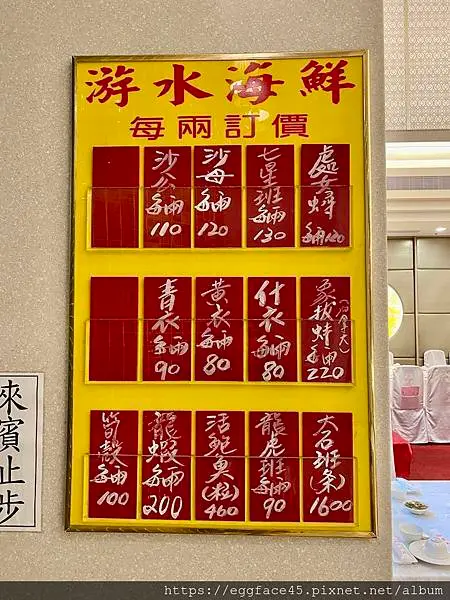 游水海鮮
每兩訂價
處女蟳
每兩120
七星班
每兩
130
沙母
每兩
120
沙公
每兩
110
象拔蚌
(加拿大)
每兩
220
什衣
每兩
80
黃衣
每兩
80
青衣
每兩
90
大石班
(条)
1600
龍虎班
每兩
90
活鮑魚
(粒)
460
龍蝦
每兩
200
筍殼
每兩
100
來賓止步
https://eggface45.pixnet.net/album